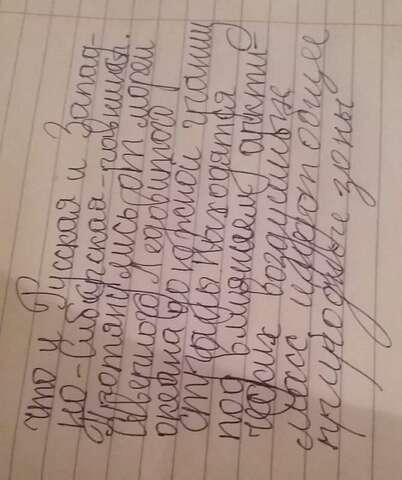 что и Русская и Запад-
но-Сибирская-равнина.
Протянулись от морей
Северного Ледовитого
океана до южной границ
страны. Находятся
под влиянием аркти-
ческих воздушных
масс имеют общее
природные зоны